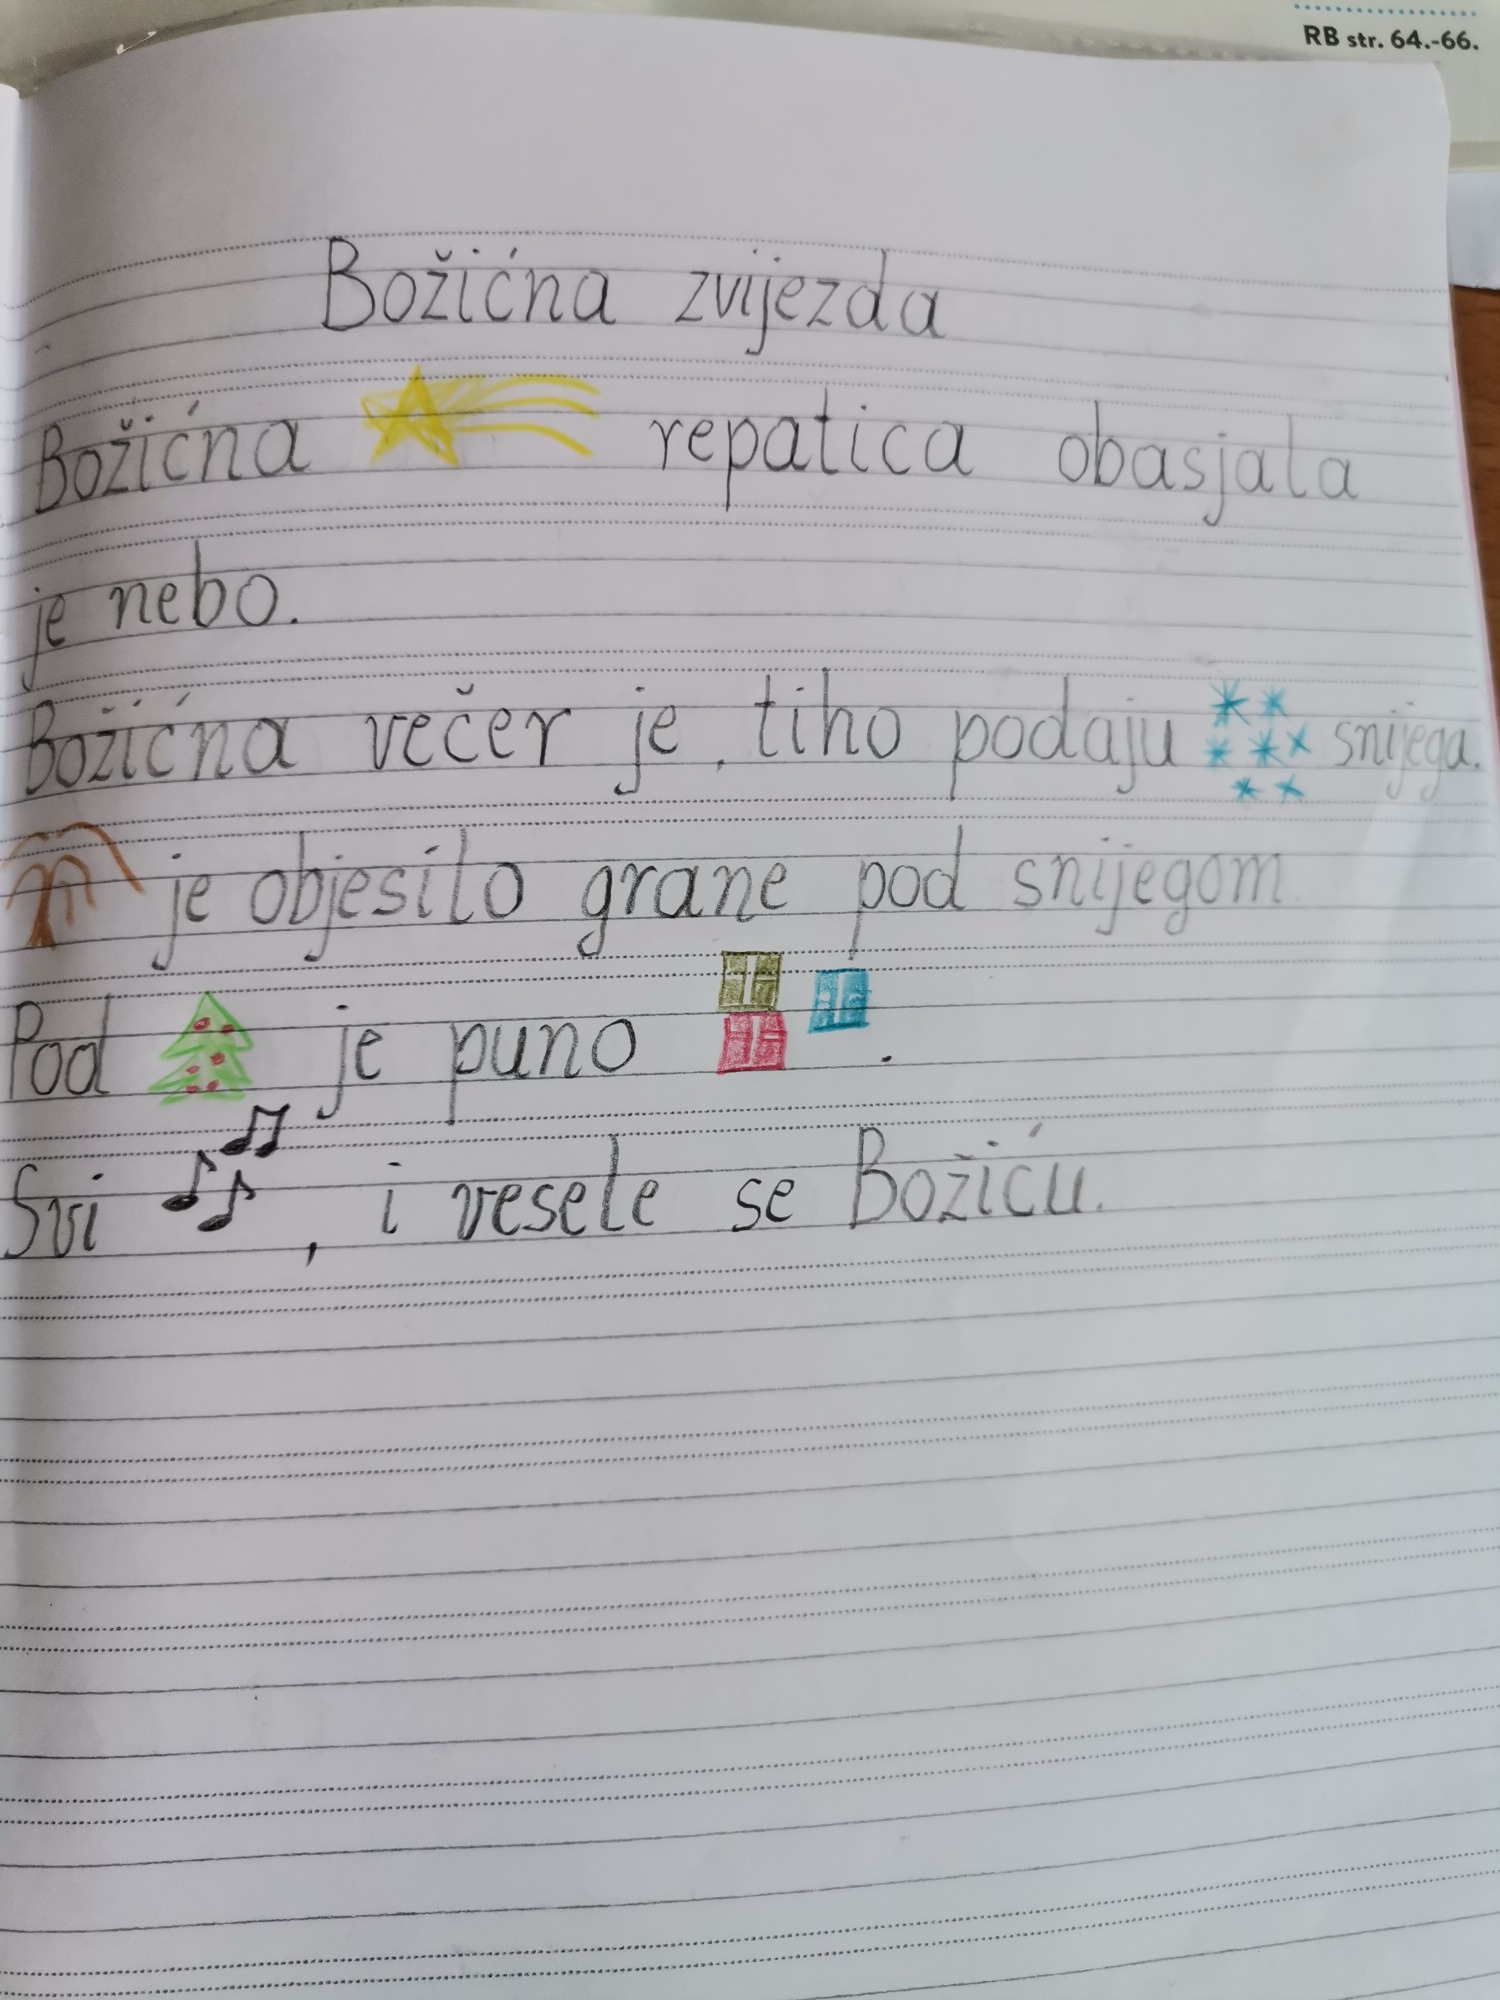 RB str. 64.-66.
Božićna zvijezda
Božićna repatica obasjala
je nebo.
Božićna večer je, tiho podaju snijega.
je objesilo grane pod snijegom.
Pod je puno .
Svi , i vesele se Božiću.